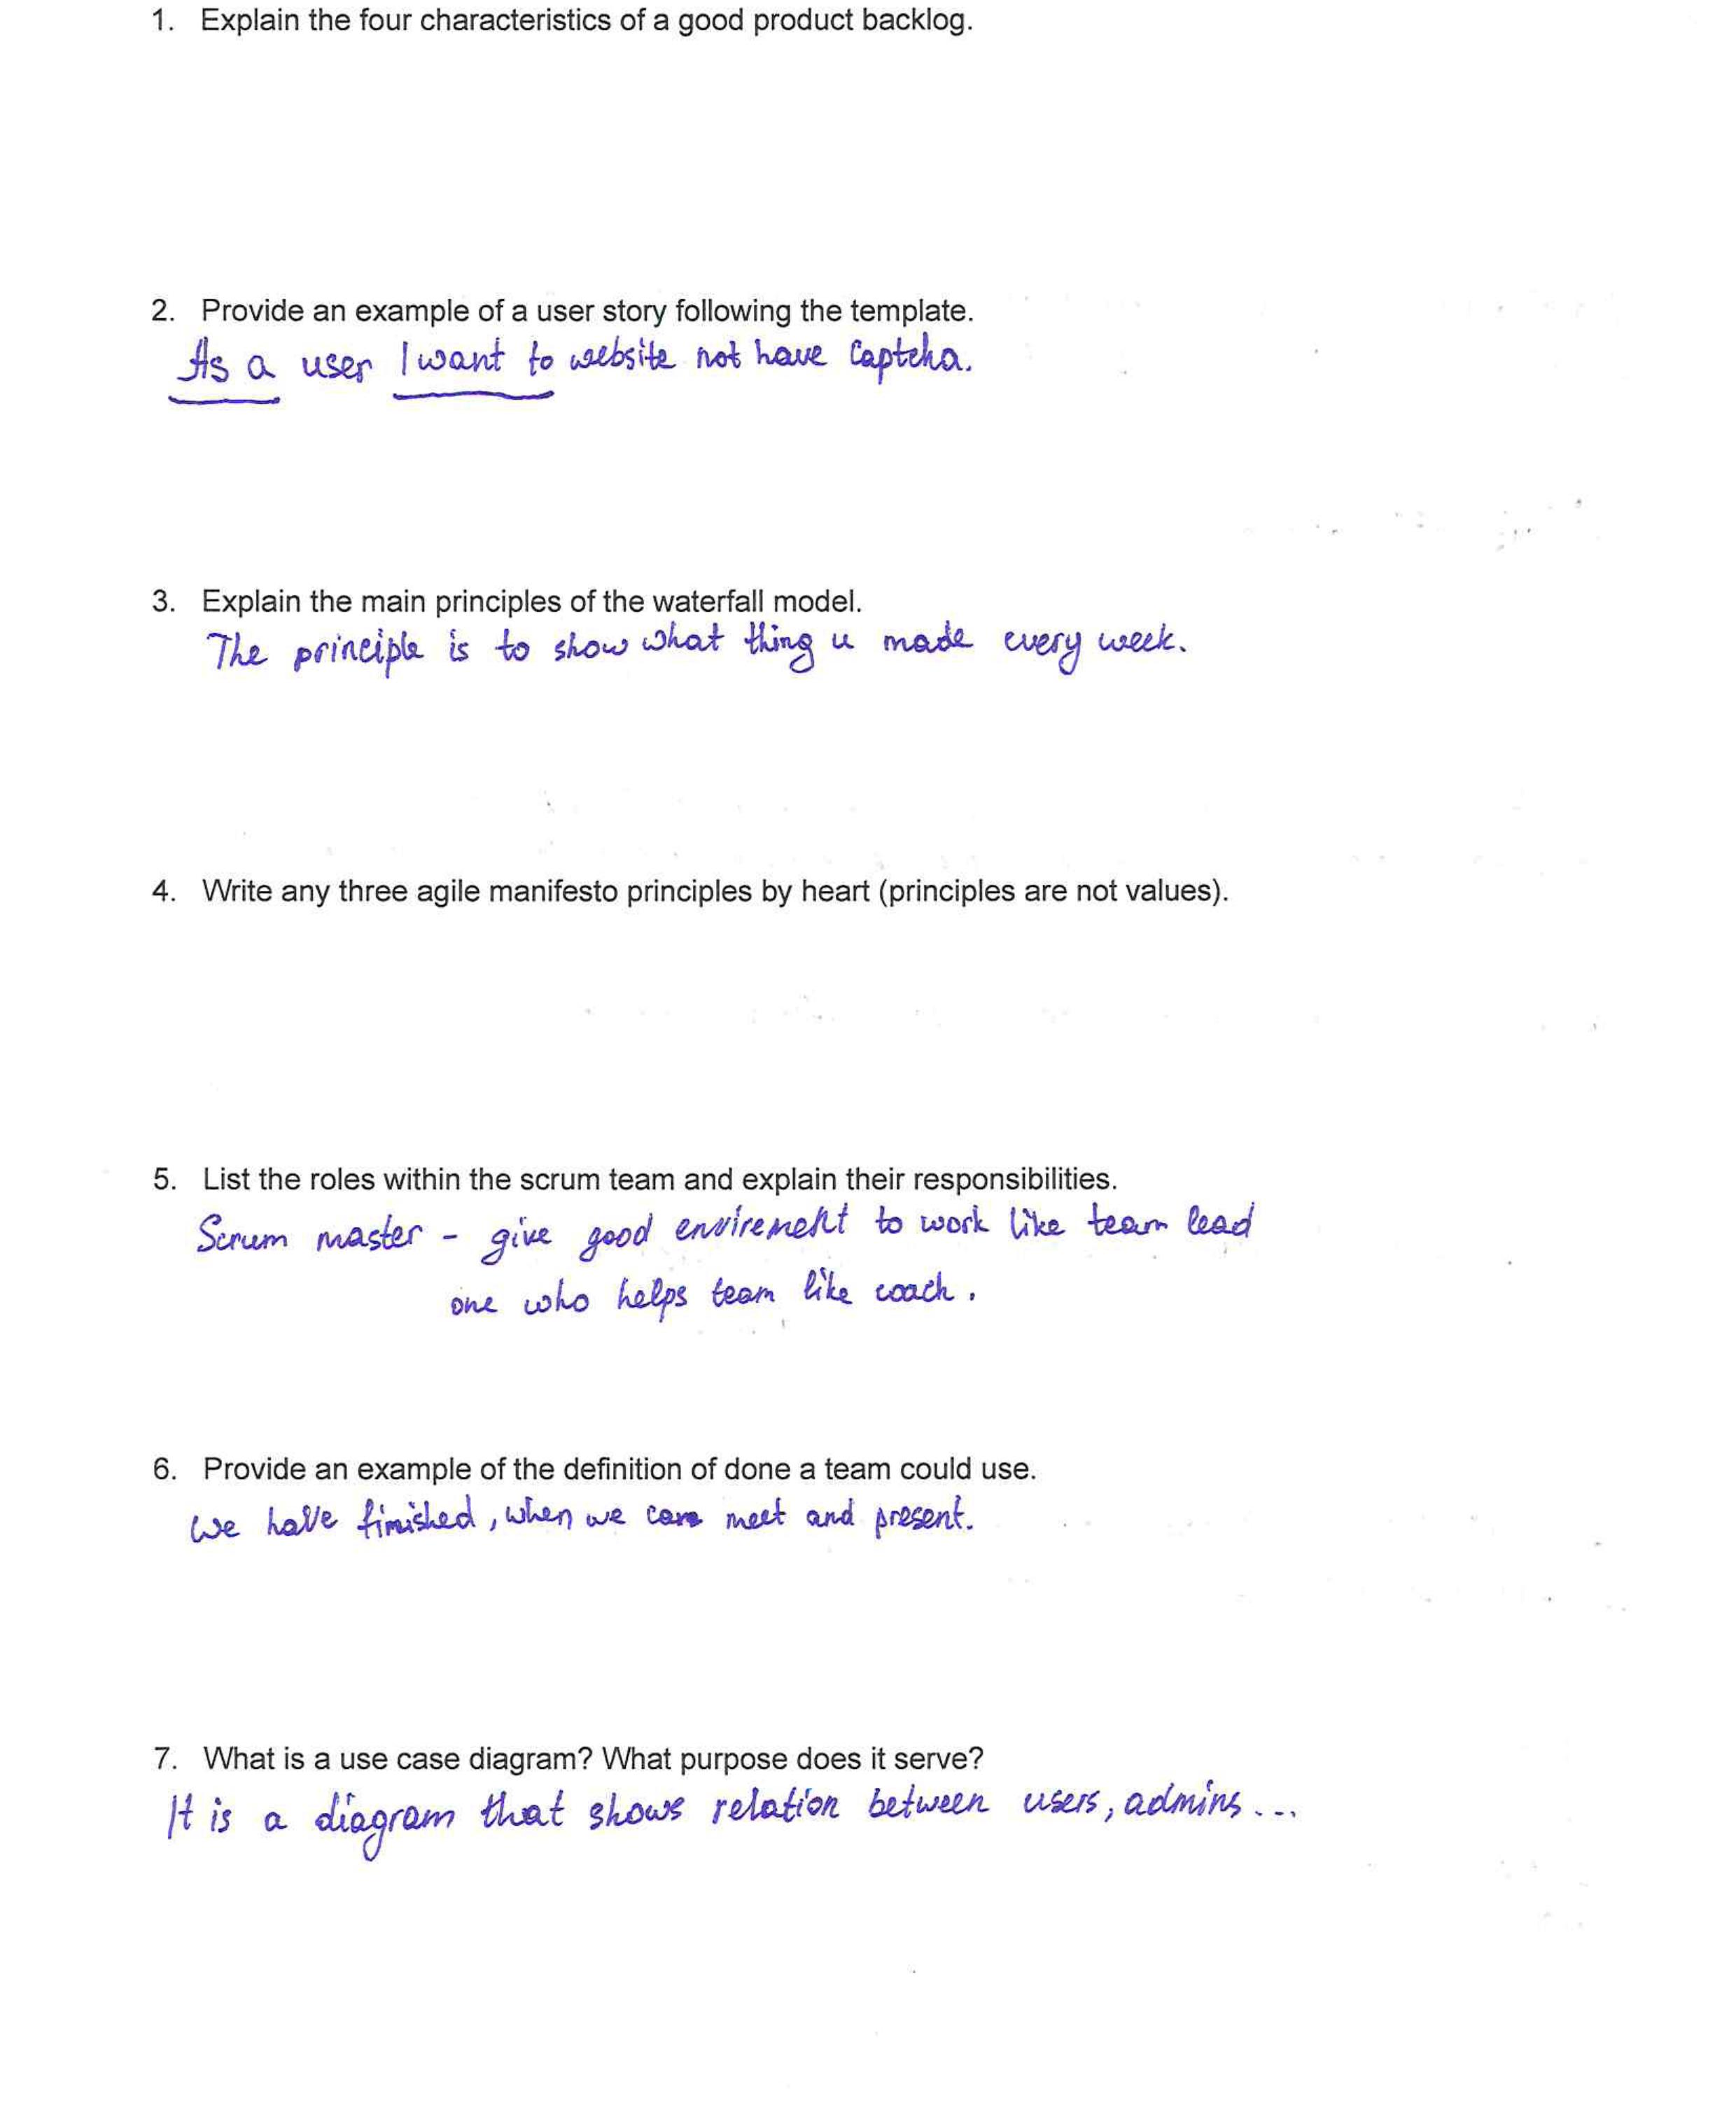 1. Explain the four characteristics of a good product backlog.
2. Provide an example of a user story following the template.
As a user I want to website not have Captcha.
3. Explain the main principles of the waterfall model.
The principle is to show what thing u made every week.
4. Write any three agile manifesto principles by heart (principles are not values).
5. List the roles within the scrum team and explain their responsibilities.
Scrum master - give good envirement to work like team lead
one who helps team like coach.
6. Provide an example of the definition of done a team could use.
We have finished, when we can meet and present.
7. What is a use case diagram? What purpose does it serve?
It is a diagram that shows relation between users, admins...